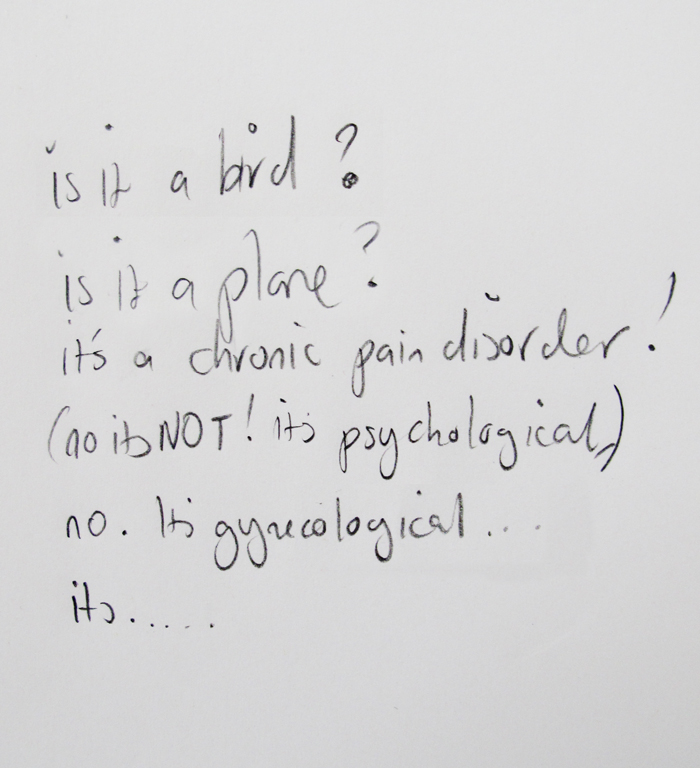 is it a bird?
is it a plane?
it's a chronic pain disorder!
(no its NOT! its psychological,)
no. Its gynecological ...
its.....